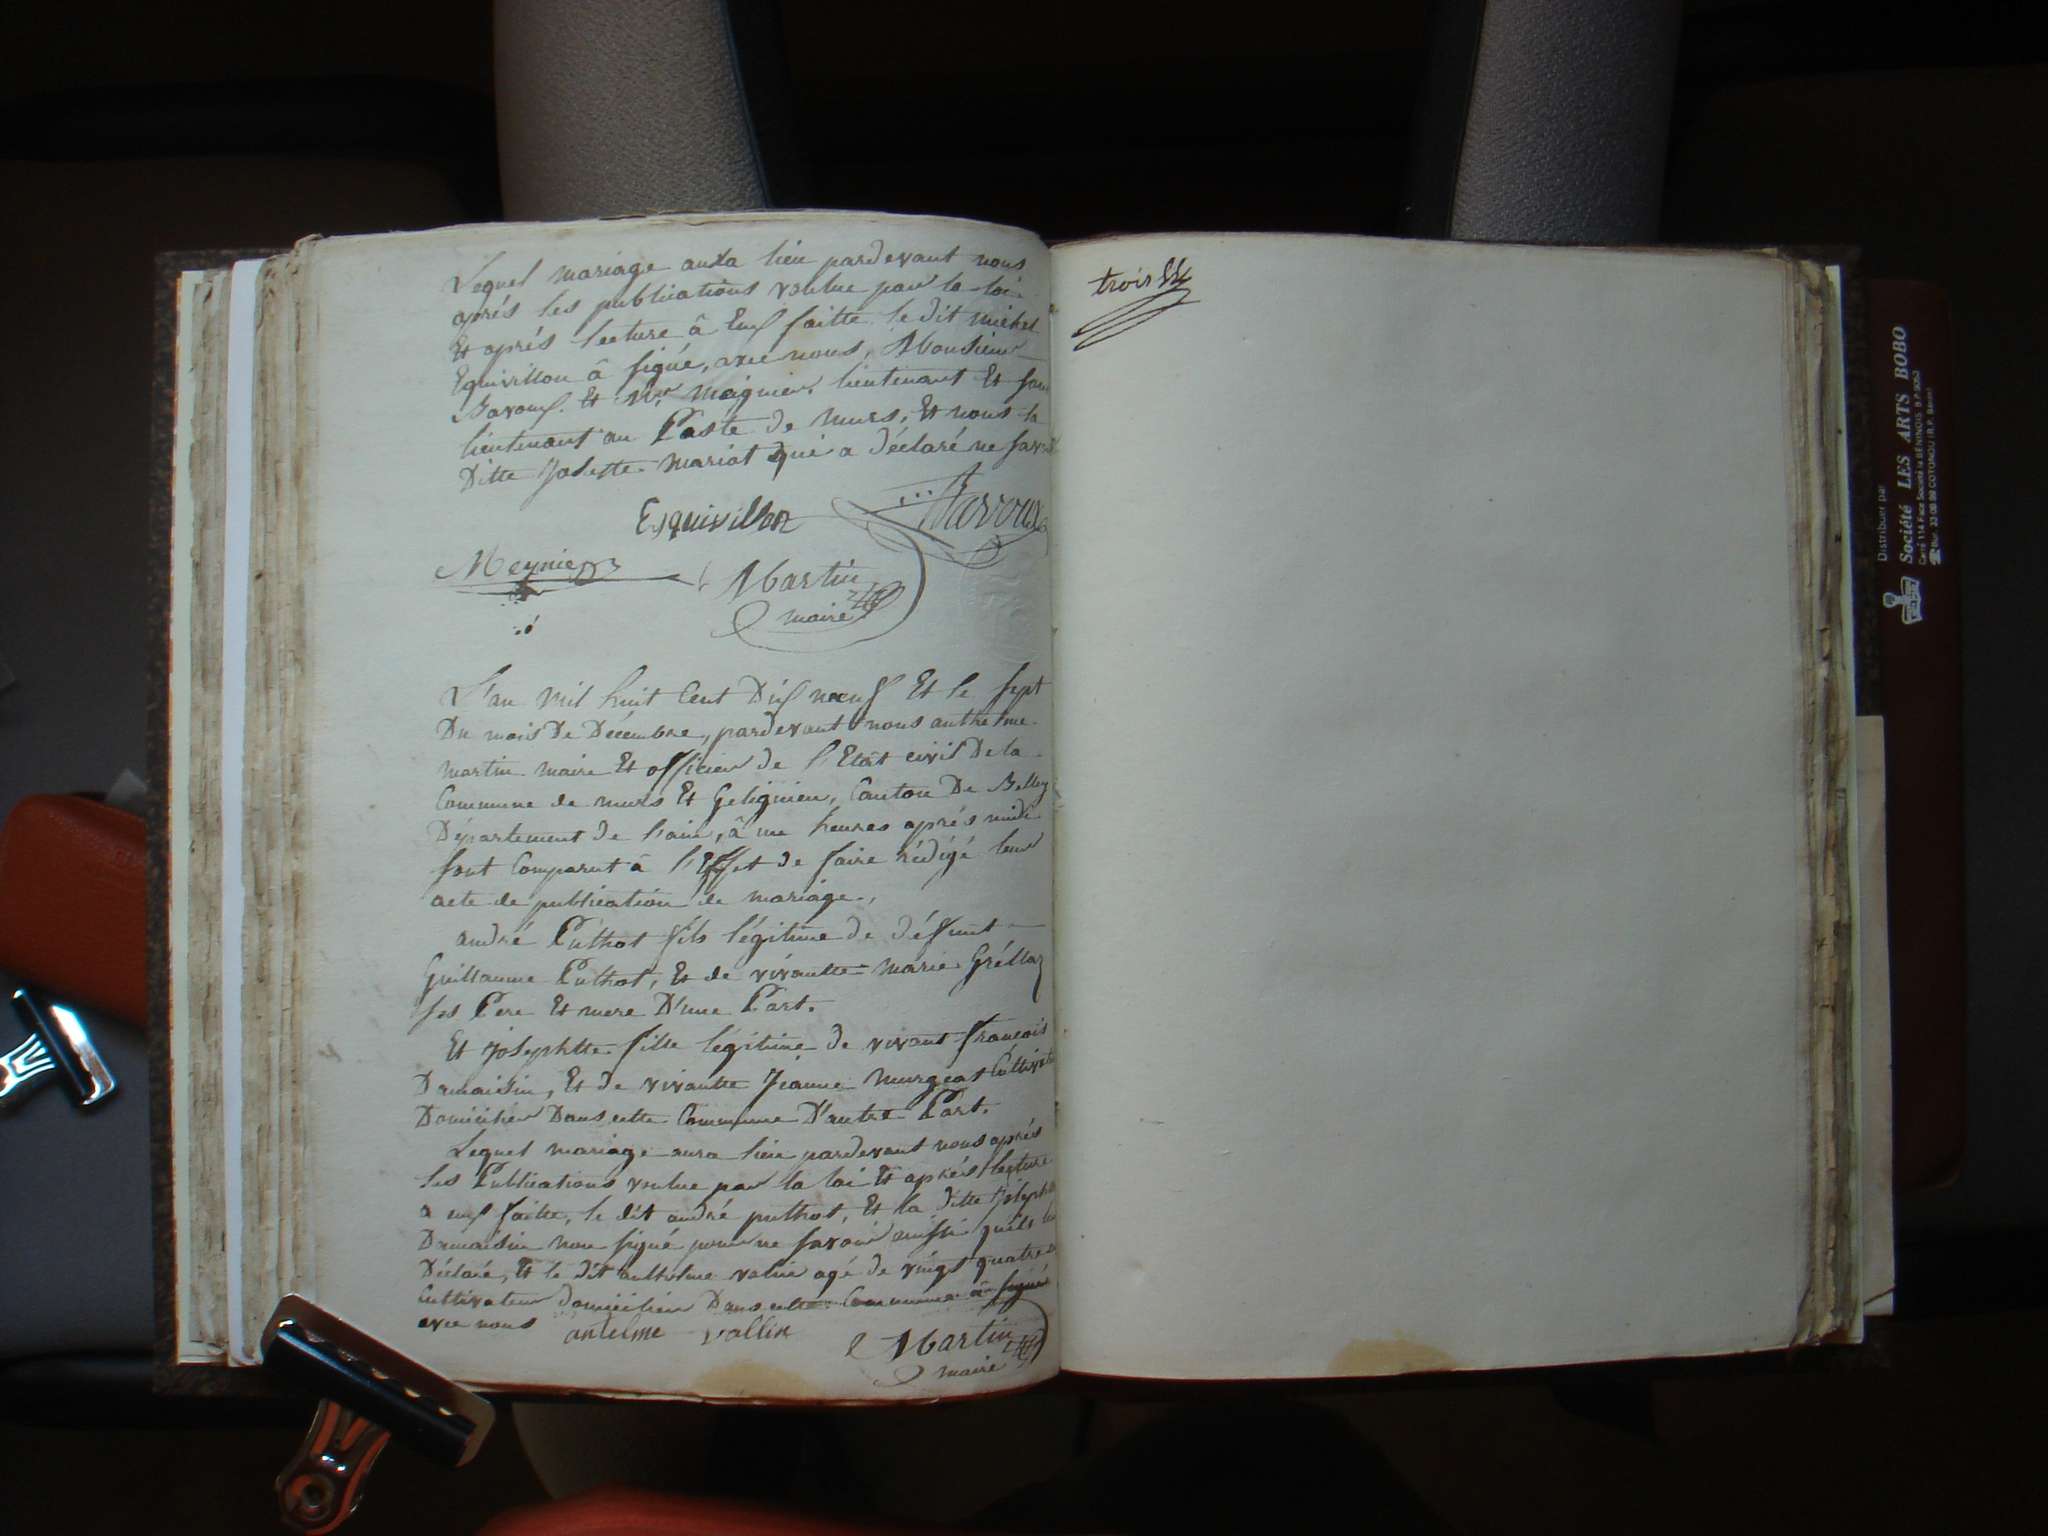 Lequel mariage aura lieu pardevant nous
aprés les publications voulue par la loi
Et aprés lecture â Eux faitte, le dit michel
Equivillon â signé, avec nous, Monsieur
Et mr lieutenant Et sous
lieutenant au Poste de Murs, Et nous la
Ditte Josette Mariot qui a déclaré ne savoir
Esquivillon
Meynier
Martin
maire
L'an mil huit Cent Dix neuf Et le sept
Du mois De Décembre, pardevant nous anthelme
martin maire Et officier de l'Etât civil De la
Commune de murs Et Gelignieu, Canton De Belley
Département de l'ain, â une heures aprés midi
sont Comparut â l'Effet de faire rédigé leur
acte de publication de mariage,
andré Puthot fils légitime de défunt
Guillaume Puthot, Et de vivantte marie Gréllaz
ses Pere Et mere D'une Part.
Et Josephtte fille légitime de vivant francois
Damaisin, Et de vivantte Jeanne Murgeas
Domicilier Dans cette Commune D'autre Part.
Lequel mariage aura lieu pardevant nous aprés
les Publications voulue par la loi Et aprés lecture
a eux faitte, le dit andré puthot, Et la ditte
Damaisin non signé pour ne savoir ainssi quils
Déclaré, Et le dit anthelme valin agé de vingt quatre
Cultivateur domicilier Dans cette Commune â signé
avec nous antelme vallin
Martin
maire
trois
Distribuer par
Société LES ARTS BOBO